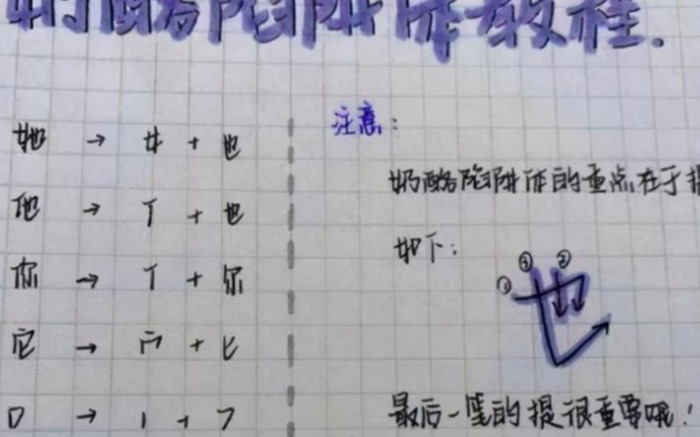 奶酪陷阱体教程.
她 → 女 + 也
他 → 亻 + 也
你 → 亻 + 尔
它 → 宀 + 匕
口 → 丨 + ㇆
注意:
奶酪陷阱体的重点在于
如下:
① ③ ②
也
最后一笔的提很重要哦!